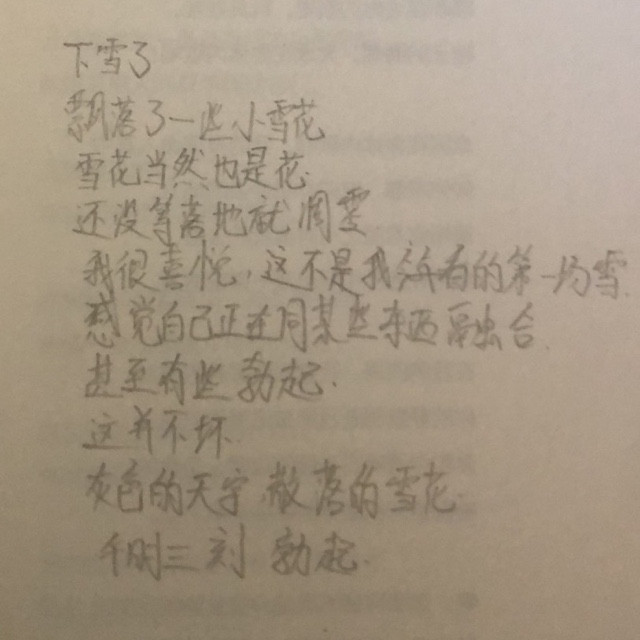 下雪了
飘落了一些小雪花
雪花当然也是花
还没等落地就凋零
我很喜悦,这不是我经历的第一场雪.
感觉自己正在同某些东西启出名
甚至有些勃起.
这并不坏.
灰色的天宇.散落的雪花.
何时三刻 勃起.